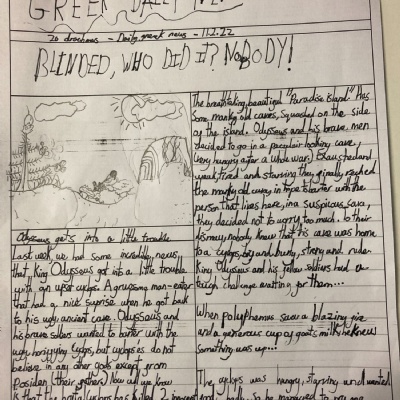 GREEK DAILY
20 drachmas - Daily greek news - 11.2.22
BLINDED, WHO DID IT? NOBODY!
Odysseus gets into a little trouble
Last week, we had some incredible news
that King Odysseus got into a little trouble
with an upset cyclops. A gruesome man-eater
that had a nice surprise when he got back
to his ugly ancient cave. Odysseus and
his brave soldiers wanted to barter with the
ugly horrifying cyclops, but cyclopses do not
believe in any other gods except from
Posiden (their father). Now all we know
is that the
The breathtaking, beautiful "Paradise island" Has
some manky old caves, squashed on the side
of the island. Odysseus and his brave men
decided to go in a peculiar looking cave,
very hungry after a whole war. Exausted and
weak, tired and starving they finally reached
the manky old cave, in hope to barter with the
person that lives here, in a suspicious cave,
they decided not to worry too much. To their
dismay, nobody knew that this cave was home
to a cyclops, big and bunty, strong and rude.
King Odysseus and his fellow soldiers had a
tough challenge waiting for them...
When polyphemus saw a blazing fire
and a generous cup of goats milk he knew
something was up...
The cyclops was hungry, starving and wanted